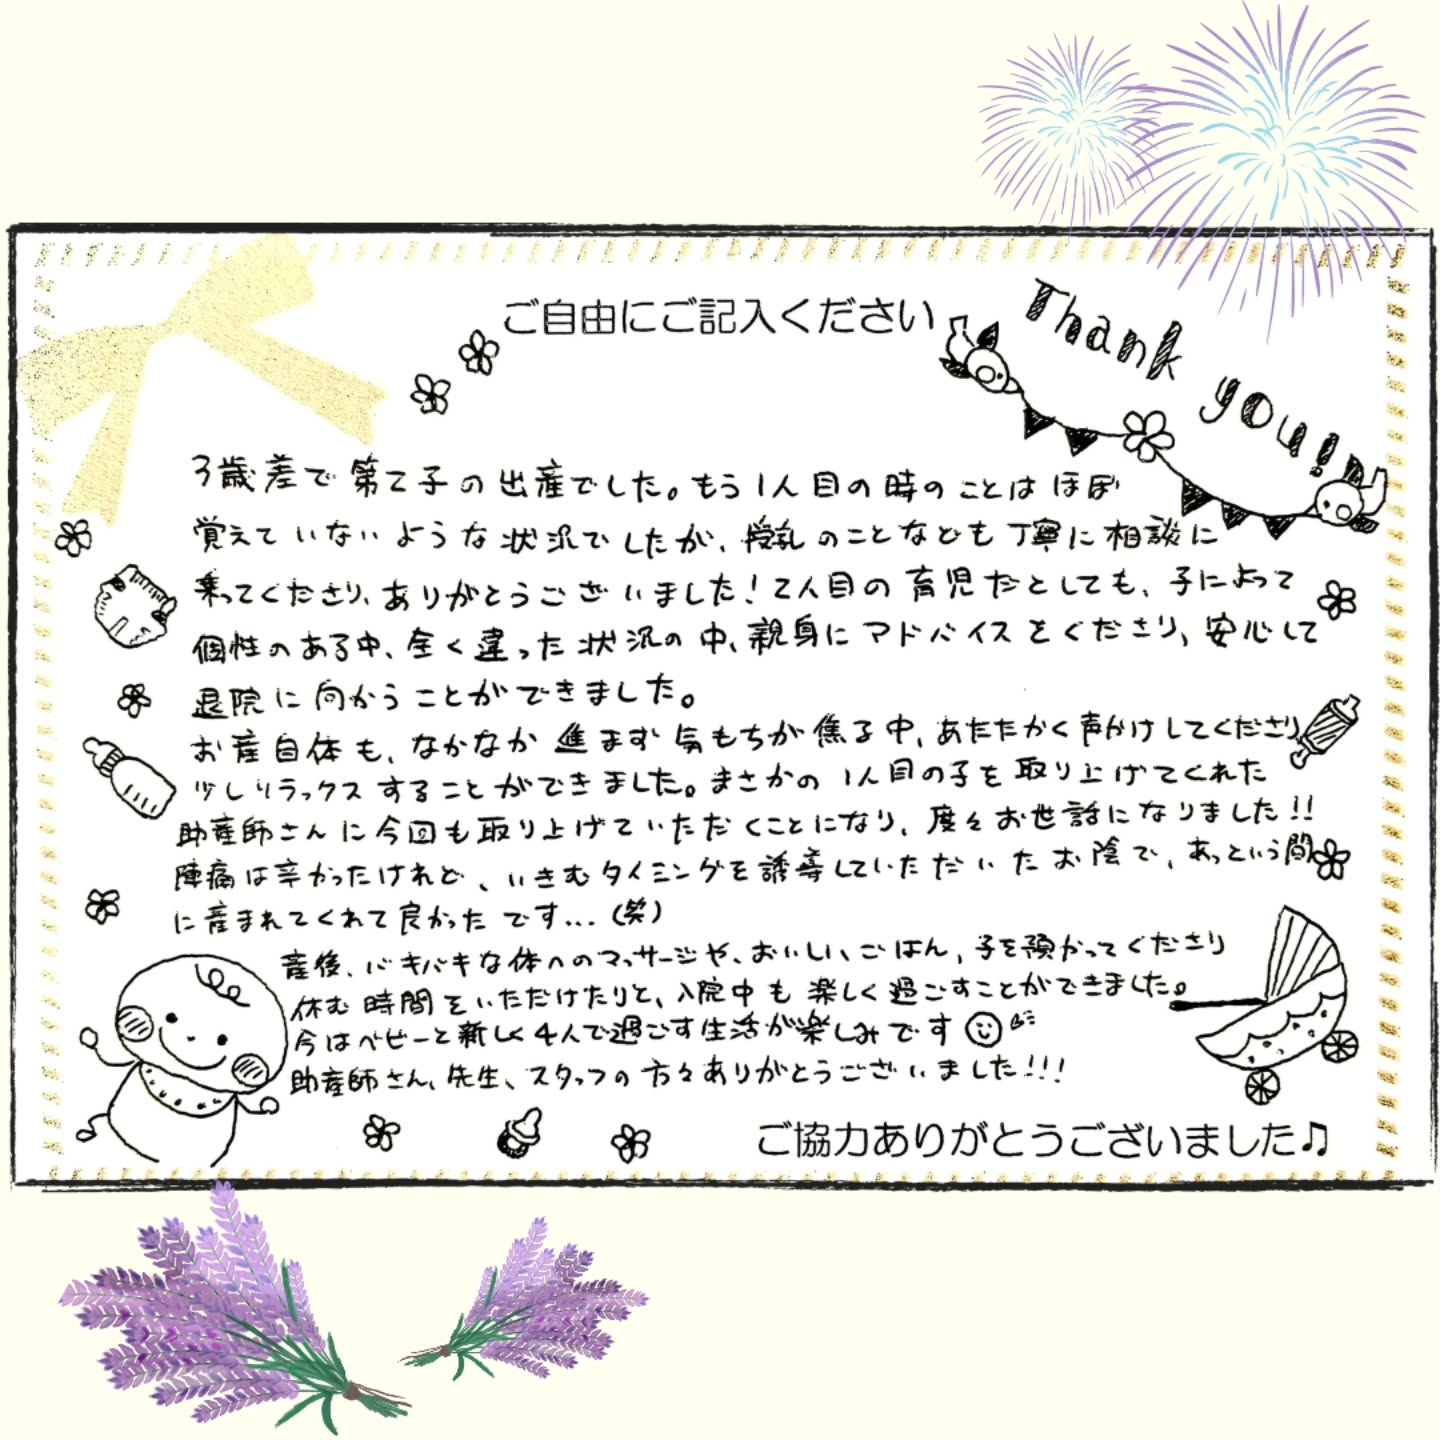 ご自由にご記入ください
Thank you!!
3歳差で第2子の出産でした。もう1人目の時のことはほぼ
覚えていないような状況でしたが、授乳のことなども丁寧に相談に
乗ってくださり、ありがとうございました!2人目の育児だとしても、子によって
個性のある中、全く違った状況の中、親身にアドバイスをくださり、安心して
退院に向かうことができました。
お産自体も、なかなか進まず気もちが焦る中、あたたかく声かけしてくださり
少しリラックスすることができました。まさかの1人目の子を取り上げてくれた
助産師さんに今回も取り上げていただくことになり、度々お世話になりました!!
陣痛は辛かったけれど、いきむタイミングを誘導していただいたお陰で、あっという間
に産まれてくれて良かったです...(笑)
産後、バキバキな体へのマッサージや、おいしいごはん、子を預かってくださり
休む時間をいただけたりと、入院中も楽しく過ごすことができました。
今はベビーと新しく4人で過ごす生活が楽しみです
助産師さん、先生、スタッフの方々ありがとうございました!!!
ご協力ありがとうございました♫